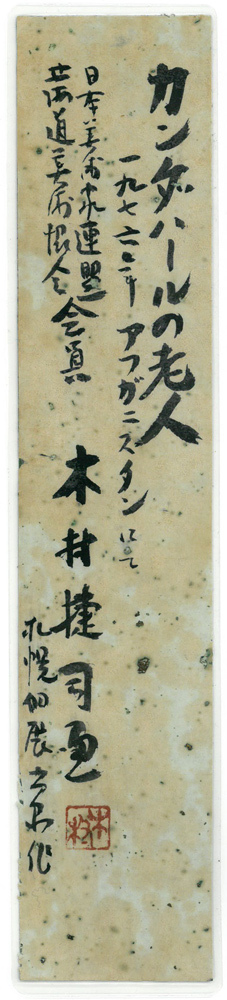 カンダハールの老人
一九七六年 アフガニスタン にて
日本美術家連盟
北海道美術協会 会員
木村捷司画
木村
札幌個展出品作